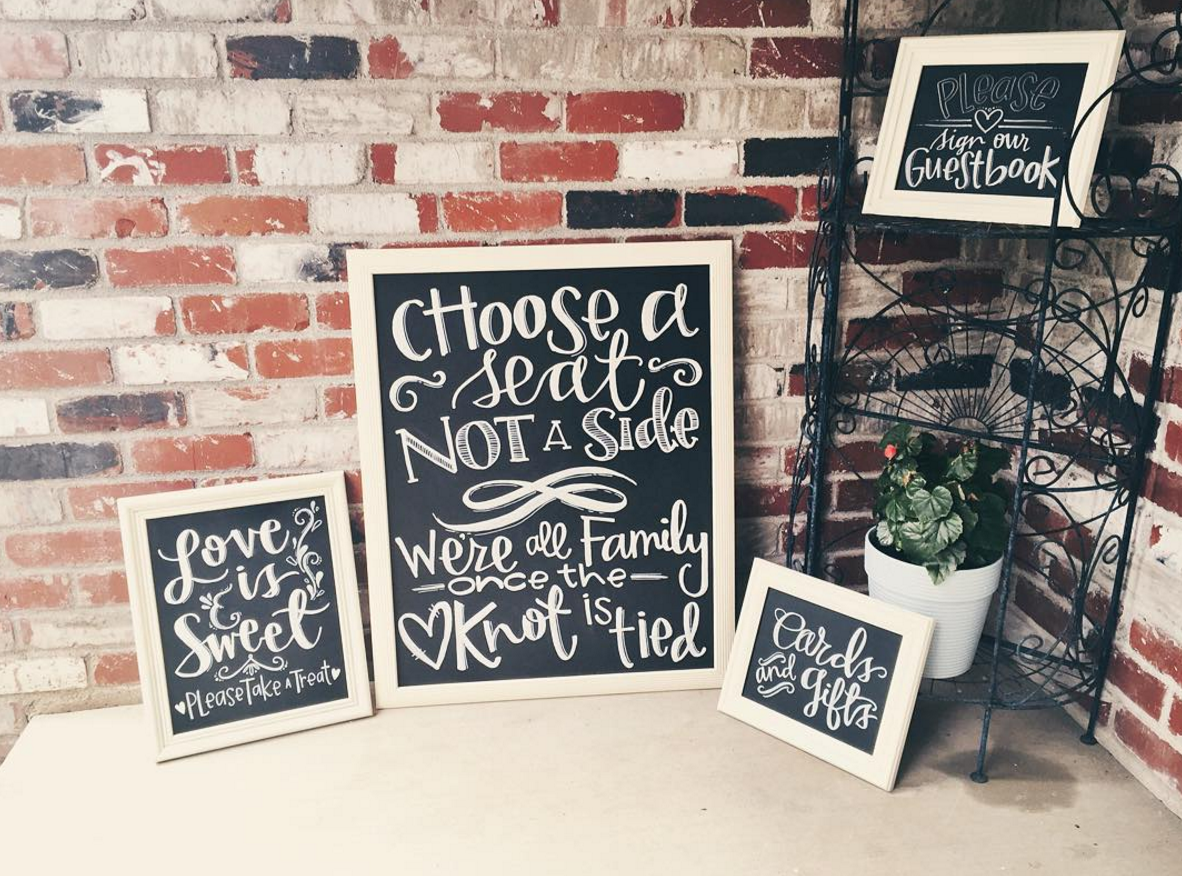 Love
is
Sweet
Please Take A Treat
Choose a
seat
NOT A Side
we're all Family
once the
Knot is tied
Please
sign our
Guestbook
Cards
and gifts